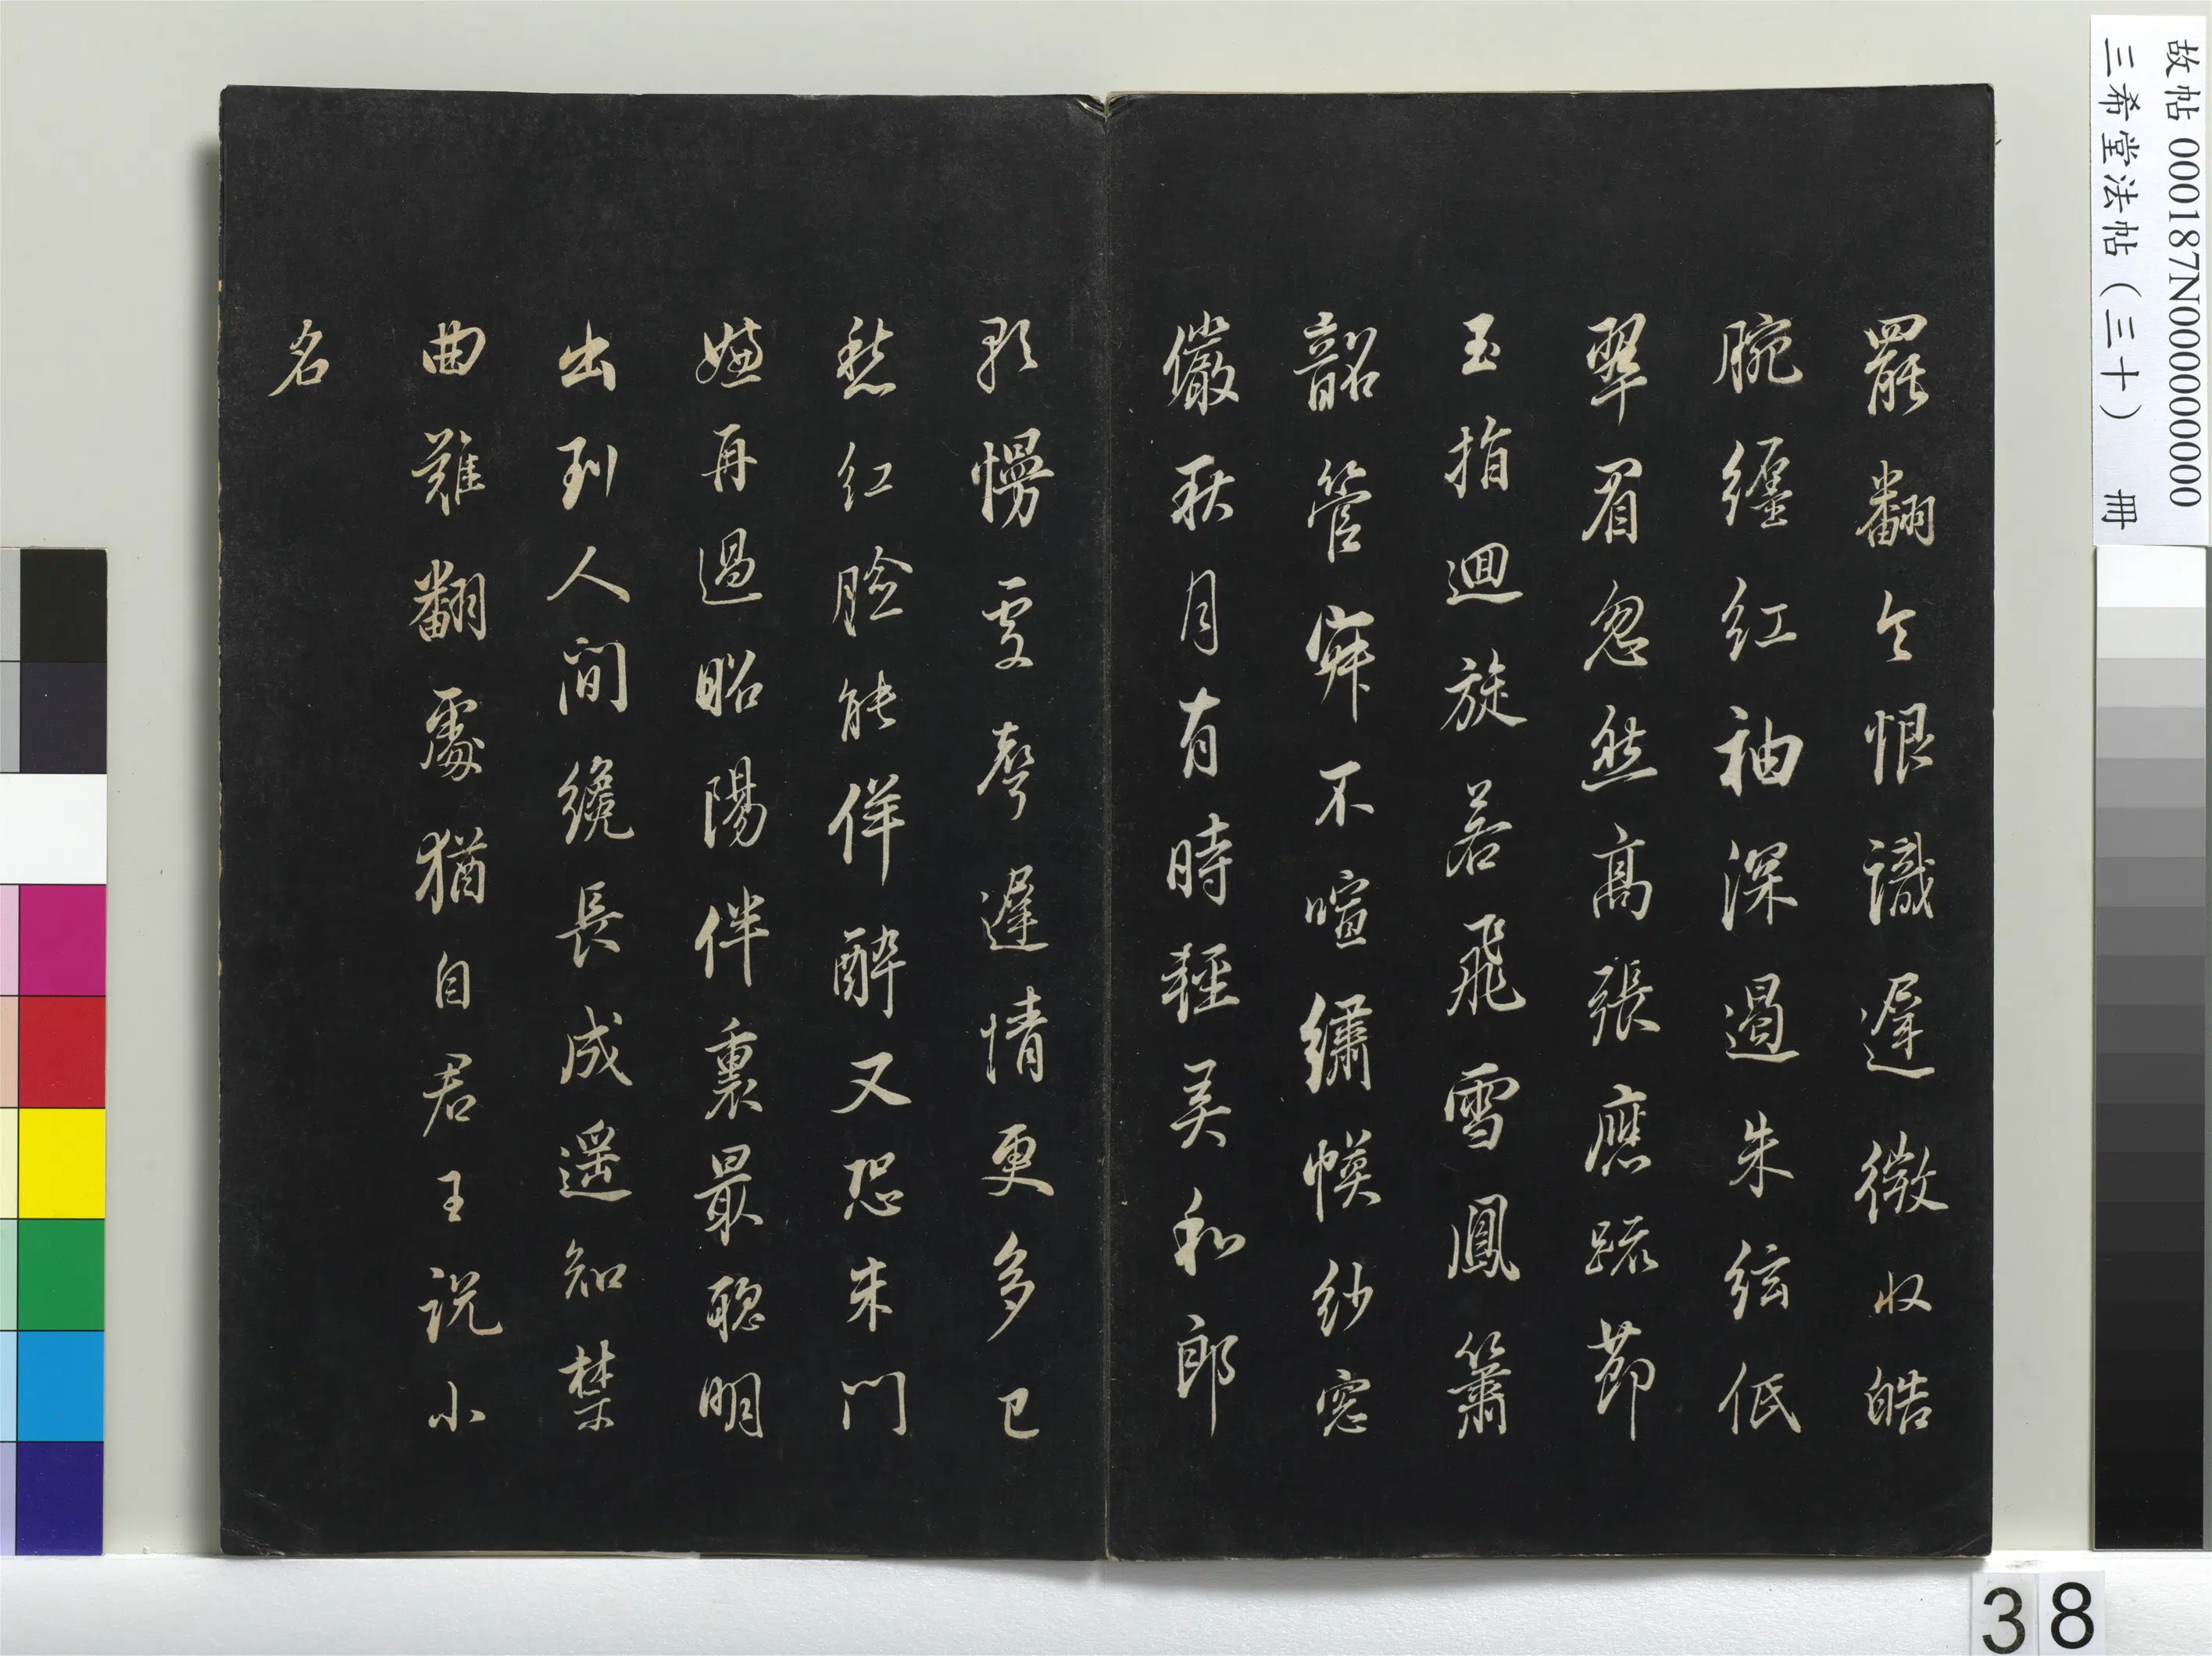 罷翻令恨識遲微收皓
腕纏紅袖深遏朱絃低
翠眉忽然高張應踈節
玉指迴旋若飛雪鳳簫
韶管寂不喧繡幙紗窓
儼秋月有時輕弄和郎
歌慢處聲遲情更多已
愁紅臉能佯醉又恐朱門
嫌再過昭陽伴裏最聰明
出到人間纔長成遥知禁
曲難翻處猶自君王説小
名
故帖 000187N000000000
三希堂法帖（三十） 冊
38